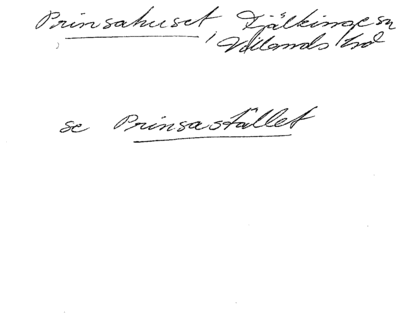 Prinsahuset, Fjälkinge sn
Villands hd
se Prinsastället